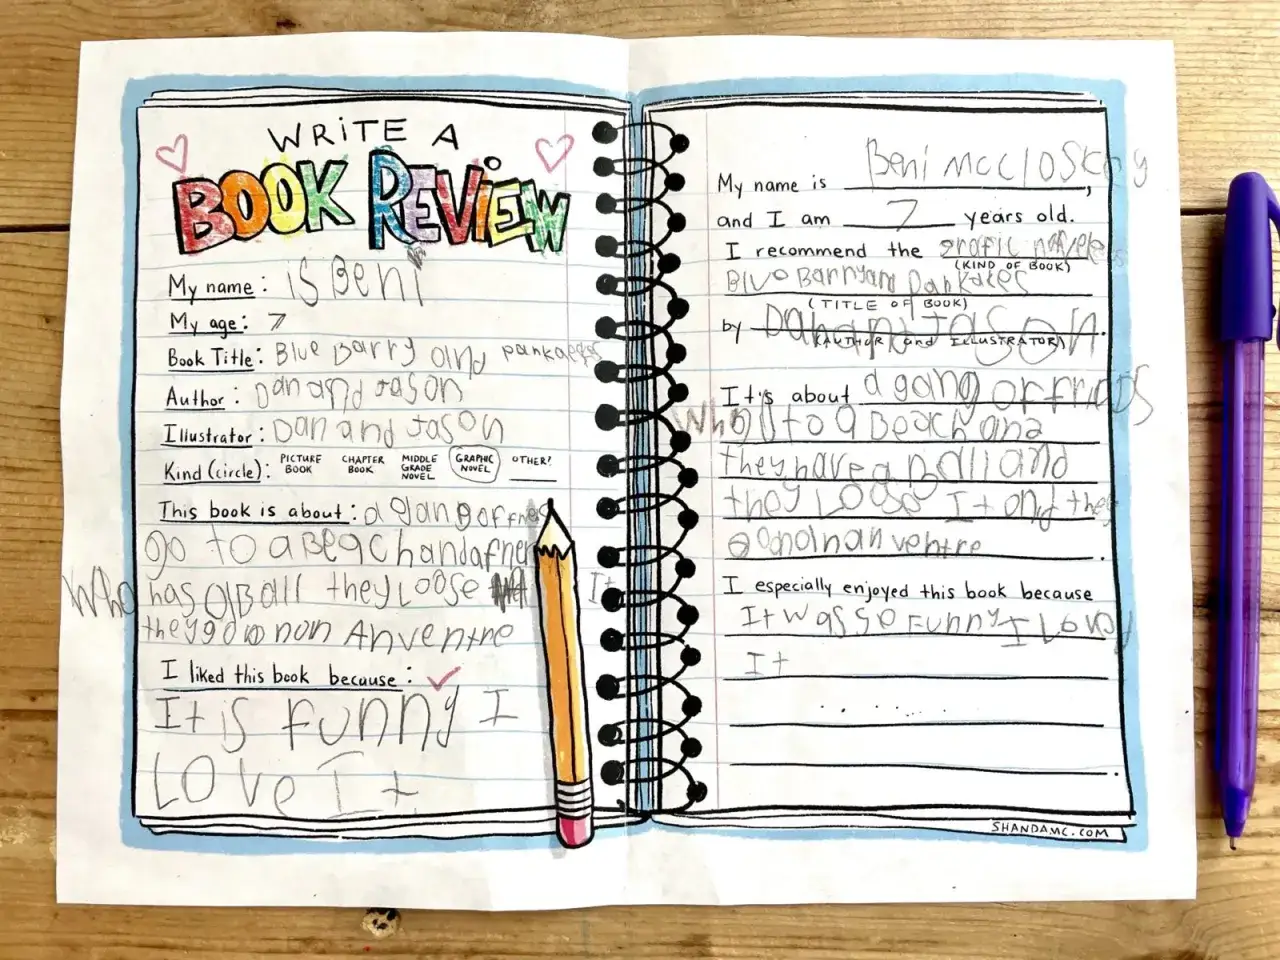 WRiTE A
BOOK REViEW
My name: is Beni
My age: 7
Book Title: Blue Barry and pankaecs
Author: Dan and Jason
Illustrator: Dan and Jason
Kind (circle): PICTURE BOOK CHAPTER BOOK MIDDLE GRADE NOVEL GRAPHIC NOVEL OTHER?
This book is about: a gang of
go to a Beach and a
Who has a Ball they Loose It
they go on an Anventre
I liked this book because:
It is Funny I
Love It
My name is Beni McCloskey,
and I am 7 years old.
I recommend the grafic
(KIND OF BOOK)
Blue Barry an Pankaces
(TITLE OF BOOK)
by Dan an Jason.
(AUTHOR and ILLUSTRATOR)
It's about a gang of
Who to a Beach and
they have a Ball and
they Loose It and they
go on an anventre.
I especially enjoyed this book because
It was so Funny I Love
It
SHANDAMC.COM